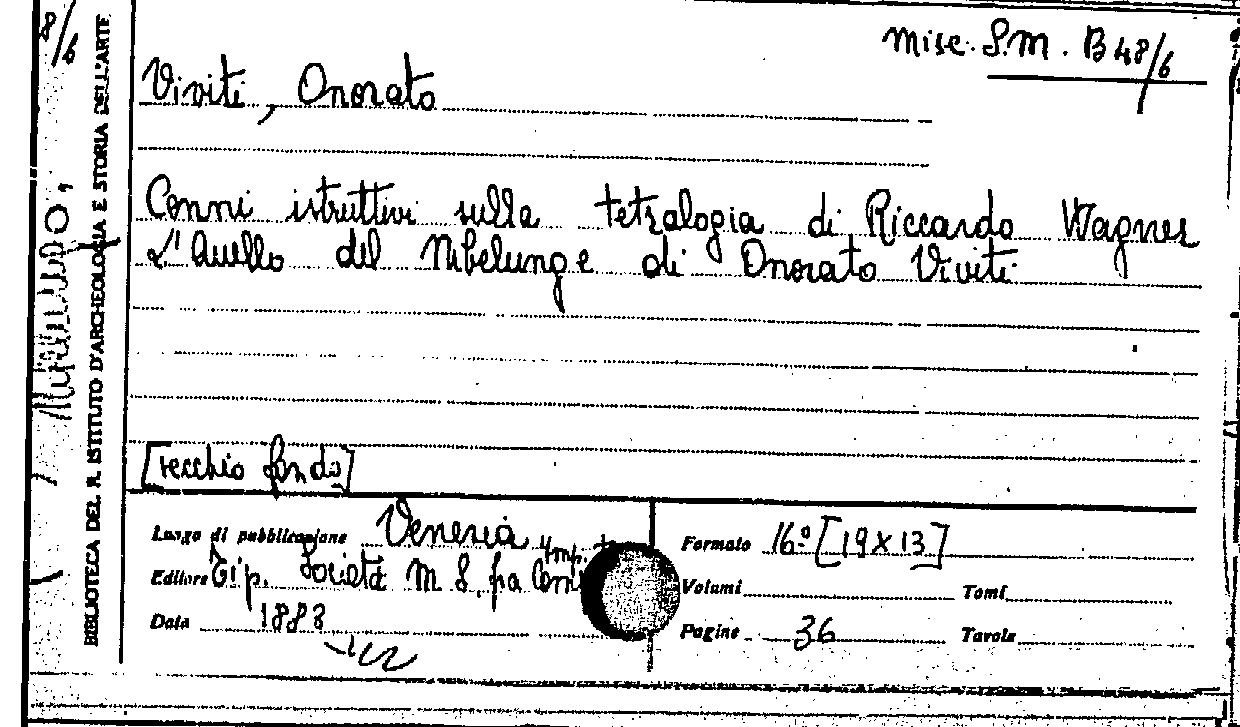 Misc. S.M. B 48/6
8/6
Viviti, Onorato
Cenni istruttivi sulla tetralogia di Riccardo Wagner
L'Anello del Nibelunge di Onorato Viviti
[vecchio fondo]
BIBLIOTECA DEL R. ISTITUTO D'ARCHEOLOGIA E STORIA DELL'ARTE
Luogo di pubblicazione Venezia
Editore Tip. Società M S. fra Comp
Data 1883
Formato 16.° [19 x 13]
Volumi Tomi
Pagine 36 Tavole